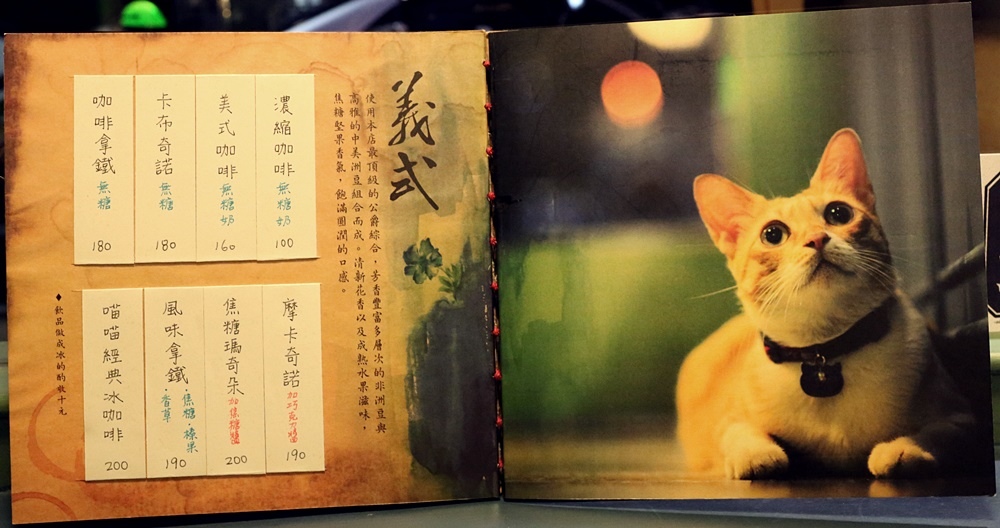 義式
使用本店最頂級的公爵綜合，芳香豐富多層次的非洲豆與
高雅的中美洲豆組合而成。清新花香以及成熟水果滋味，
焦糖堅果香氣，飽滿圓潤的口感。
濃縮咖啡 無糖奶 100
美式咖啡 無糖奶 160
卡布奇諾 無糖 180
咖啡拿鐵 無糖 180
摩卡奇諾 加巧克力醬 190
焦糖瑪奇朵 加焦糖醬 200
風味拿鐵 ·焦糖·榛果
·香草 190
喵喵經典冰咖啡 200
♦飲品做成冰的酌收十元